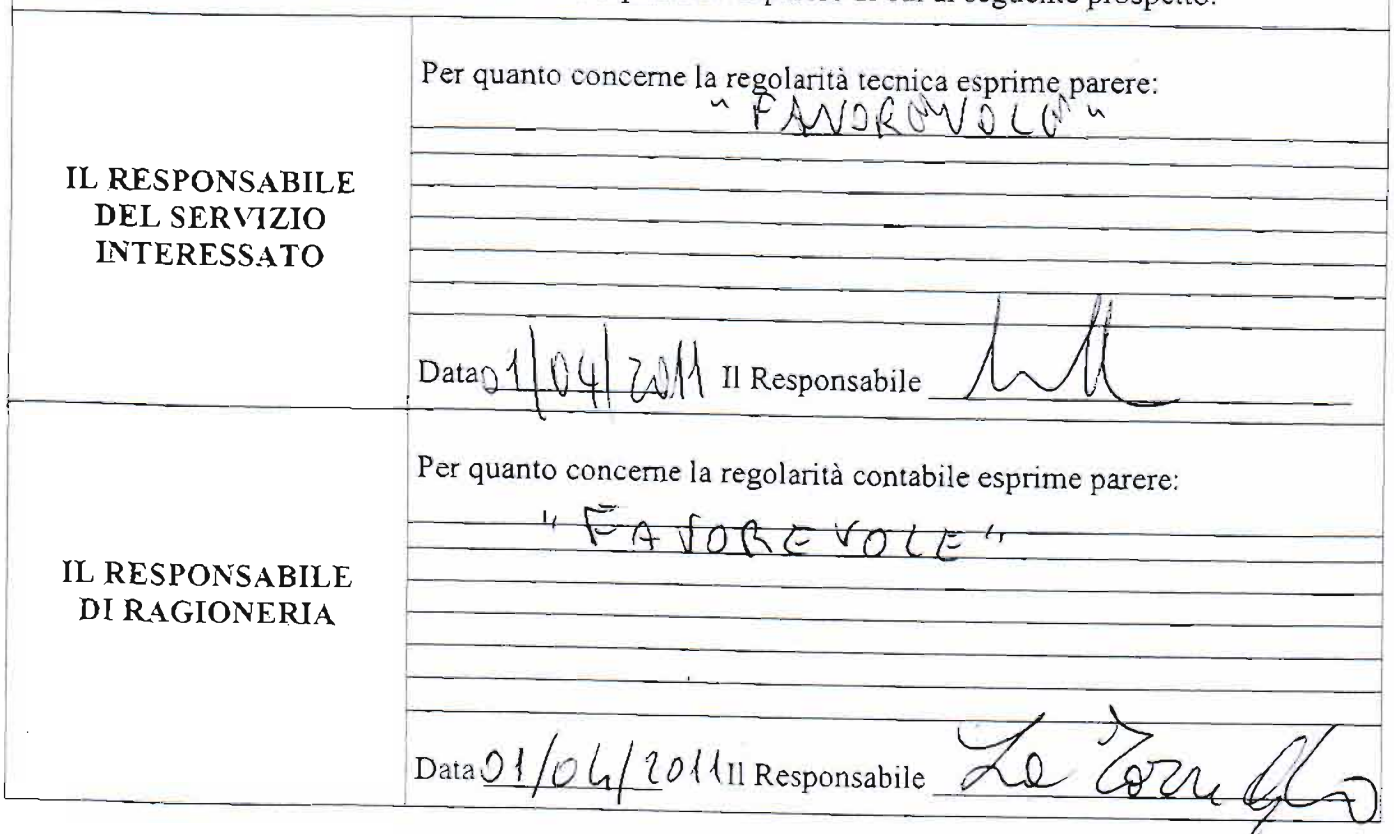 di cui al seguente prospetto:
IL RESPONSABILE
DEL SERVIZIO
INTERESSATO
Per quanto concerne la regolarità tecnica esprime parere:
"FAVOREVOLE"
Data 01/04/2011 Il Responsabile
IL RESPONSABILE
DI RAGIONERIA
Per quanto concerne la regolarità contabile esprime parere:
"FAVOREVOLE"
Data 01/04/2011 Il Responsabile